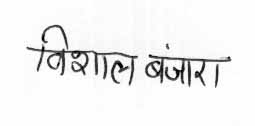 विशाल बंजारा